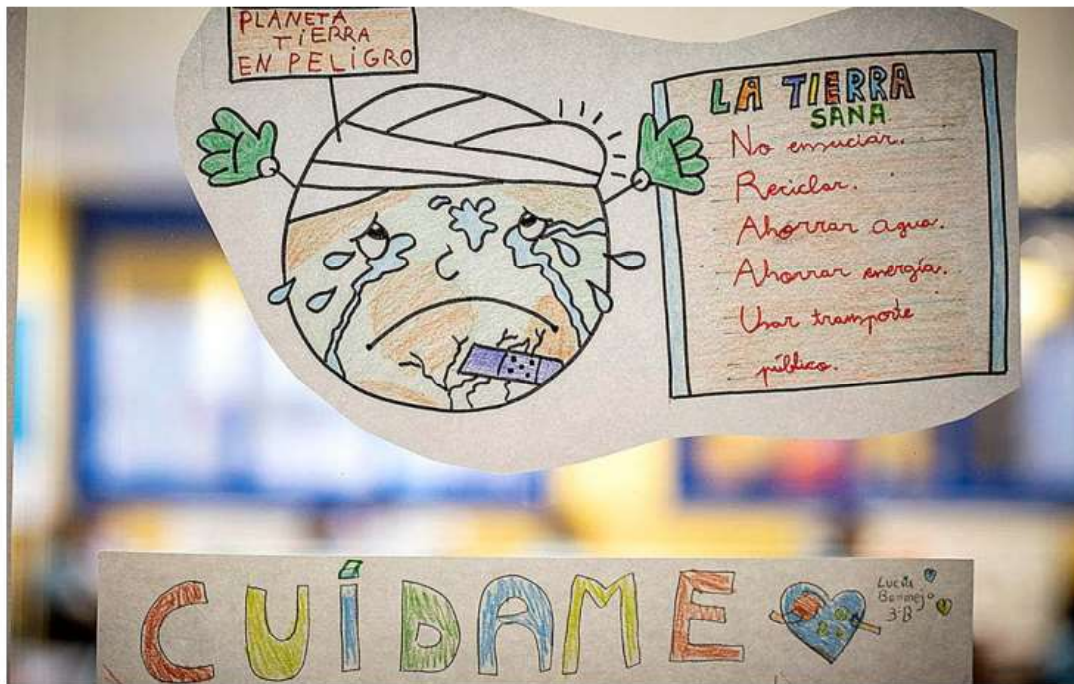 PLANETA
TIERRA
EN PELIGRO
LA TIERRA
SANA
No ensuciar.
Reciclar.
Ahorrar agua.
Ahorrar energía.
Usar transporte
público.
CUÍDAME
Lucía
Bonmejo
3ºB